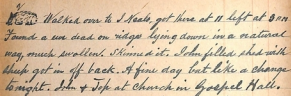 Walked over to S. Neals, got there at 11 left at 3 P.M.
Found a ewe dead on ridge lying down in a natural
way, much swollen. Skinned it. John filled shed with
sheep got in off back. A fine day but like a change
tonight. John & Top at church in Gospel Hall.